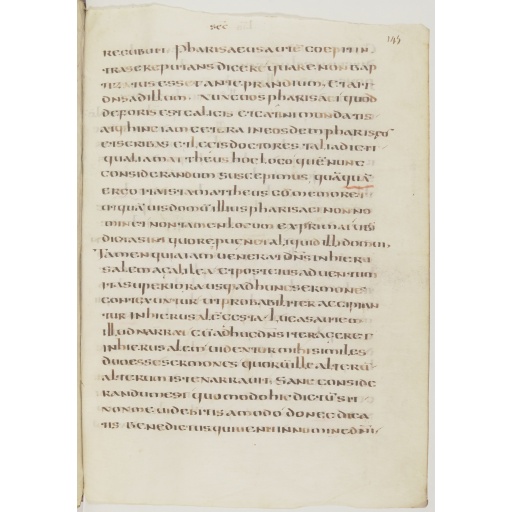 sec
145
recubuit pharisaeus autē coepit in
tra se reputans dicere quare non bap
tizatus esset ante prandium, et ait
dns ad illum. Nunc uos pharisaei quod
deforis est calicis et catini mundatis
adhinc iam cetera in eosdem phariseos
et scribas et legis doctores talia dicit
qualia mattheus hoc loco quē nunc
considerandum suscepimus, quāquā
ergo ita ista mattheus cōmemoret
ut quāuis domū illius pharisaei non no
minet non tamen locum exprimat ubi
dicta sint quo repugnet aliquid illi domui.
Tamen quia iam uenerat dns in hieru
salem a galilea et posteius aduentum
ita superiora usq ad hunc sermones
contexuntur ut probabiliter accipian
tur in hierusalē gesta. Lucas autem
illud narrat cū adhuc dns iter ageret
in hierusalem uidentur mihi similes
duo esse sermones quorū ille alterū
alterum iste narrauit. Sane conside
randum est quomodo hic dictū sit
non me uidebitis amodo donec dica
tis benedictus qui uenit in nomine dni.